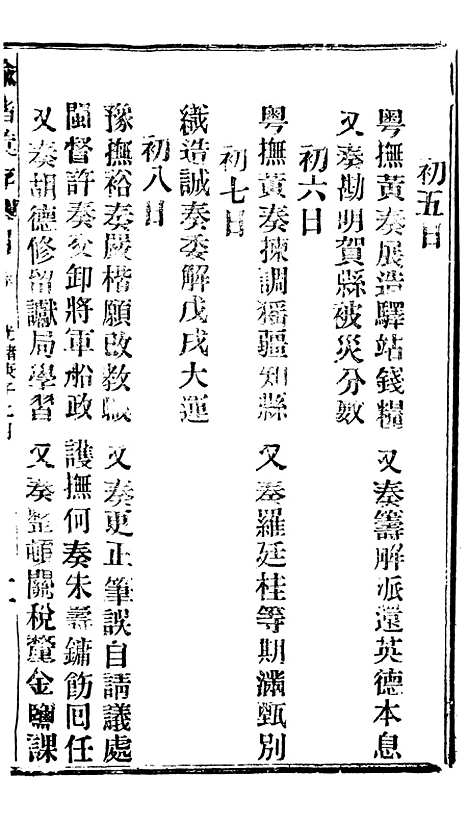 初五日
粤撫黃奏展造驛站錢糧　又奏籌解派還英德本息
又奏勘明賀縣被災分數
初六日
粤撫黃奏揀調猺疆知縣　又奏羅廷桂等期滿甄別
初七日
織造誠奏委解戊戌大運
初八日
豫撫裕奏嚴楷願改教職　又奏更正筆誤自請議處
閩督許奏交卸將軍船政　護撫何奏朱壽鏞飭回任
又奏胡德修留讞局學習　又奏整頓關稅釐金鹽課
諭摺彙存 光緒庚子